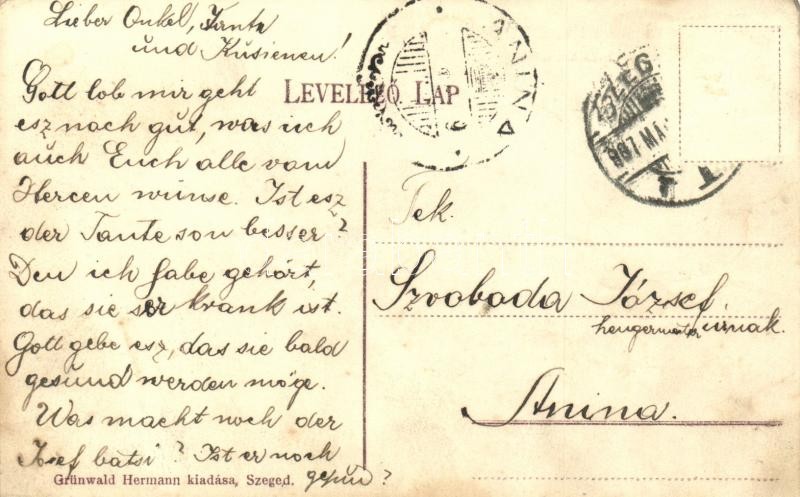 Lieber Onkel, Tante
und Kusienen!
Gott lob mir geht
esz nach gut, was ich
auch Euch alle vom
Hercen wünse. Ist esz
der Tante son besser?
Den ich habe gehört,
das sie ser krank ist.
Gott gebe esz, das sie bald
gesund werden möge.
Was macht noch der
Josef batsi? Ist er noch
LEVELEZŐ LAP
ANINA
SZEG
907 MÁ
Tek.
Szvoboda József
hengermester urnak.
Anina.
Grünwald Hermann kiadása, Szeged.